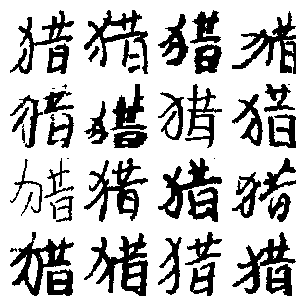 猎猎猎猎
猎猎猎猎
猎猎猎猎
猎猎猎猎